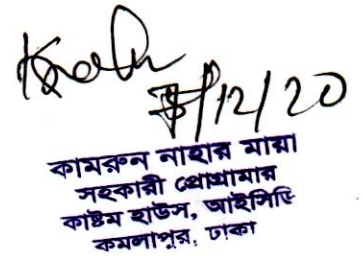 /12/20
কামরুন নাহার মায়া
সহকারী প্রোগ্রামার
কাষ্টম হাউস, আইসিডি
কমলাপুর, ঢাকা